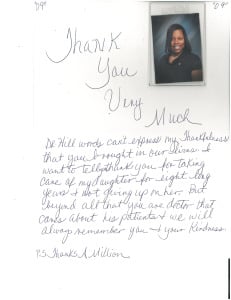 "09" "09"
Thank
You
Very
Much
Dr Hill words can't express my thankfulness
that you brought in our lives. I
want to tell thank you for taking
care of my daughter for eight long
years & not giving up on her. But
beyond all that you are doctor that
cares about his patients & we will
always remember you & your kindness.
P.S. Thanks A Million